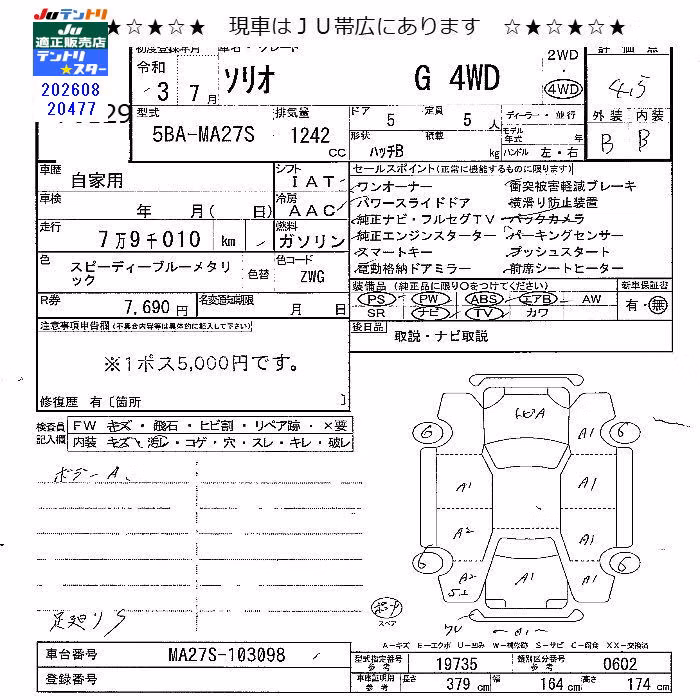 JUテントリ ★☆★☆★ 現車はJU帯広にあります ☆★☆★☆★
JU
適正販売店
テントリ
★スター
202608
20477
初度登録年月 車名・グレード 評価点
令和 3 7月 ソリオ G 4WD 2WD 4WD 4.5
型式 排気量 ドア 定員 ディーラー・並行 外装 内装
5BA-MA27S 1242 CC 5 5 人 モデル年式 年 B B
形状 積載 ハンドル 左・右
ハッチB kg
車歴 自家用 シフト IAT
車検 年 月( 日) 冷房 AAC
走行 7万9千010 km 燃料 ガソリン
色 スピーディーブルーメタリック 色替 色コード ZWG
R券 7,690円 名変通知期限 月 日
セールスポイント(正常に機能するものに限ります)
ワンオーナー 衝突被害軽減ブレーキ
パワースライドドア 横滑り防止装置
純正ナビ・フルセグTV バックカメラ
純正エンジンスターター パーキングセンサー
スマートキー プッシュスタート
電動格納ドアミラー 前席シートヒーター
装備品(純正品に限り○をつけてください) 新車保証書
PS PW ABS エアB AW 有・無
SR ナビ TV カワ
後日品 取説・ナビ取説
注意事項申告欄(不具合内容等は具体的に記入して下さい)
※1ポス5,000円です。
修復歴 有〔箇所 〕
検査員記入欄 FW キズ・飛石・ヒビ割・リペア跡・×要
内装 キズ・汚レ・コゲ・穴・スレ・キレ・破レ
ボデーA
足廻りS
A1
6 6
A1 A1
A2 A1
6 6
A2 A1 A1
S1
スペア
A1
A-キズ E-エクボ U-凹み W-補修跡 S-サビ C-腐食 XX-交換済
車台番号 MA27S-103098
登録番号
型式指定番号 参考 19735 類別区分番号 参考 0602
車庫証明用 参考 長さ 379 cm 幅 164 cm 高さ 174 cm